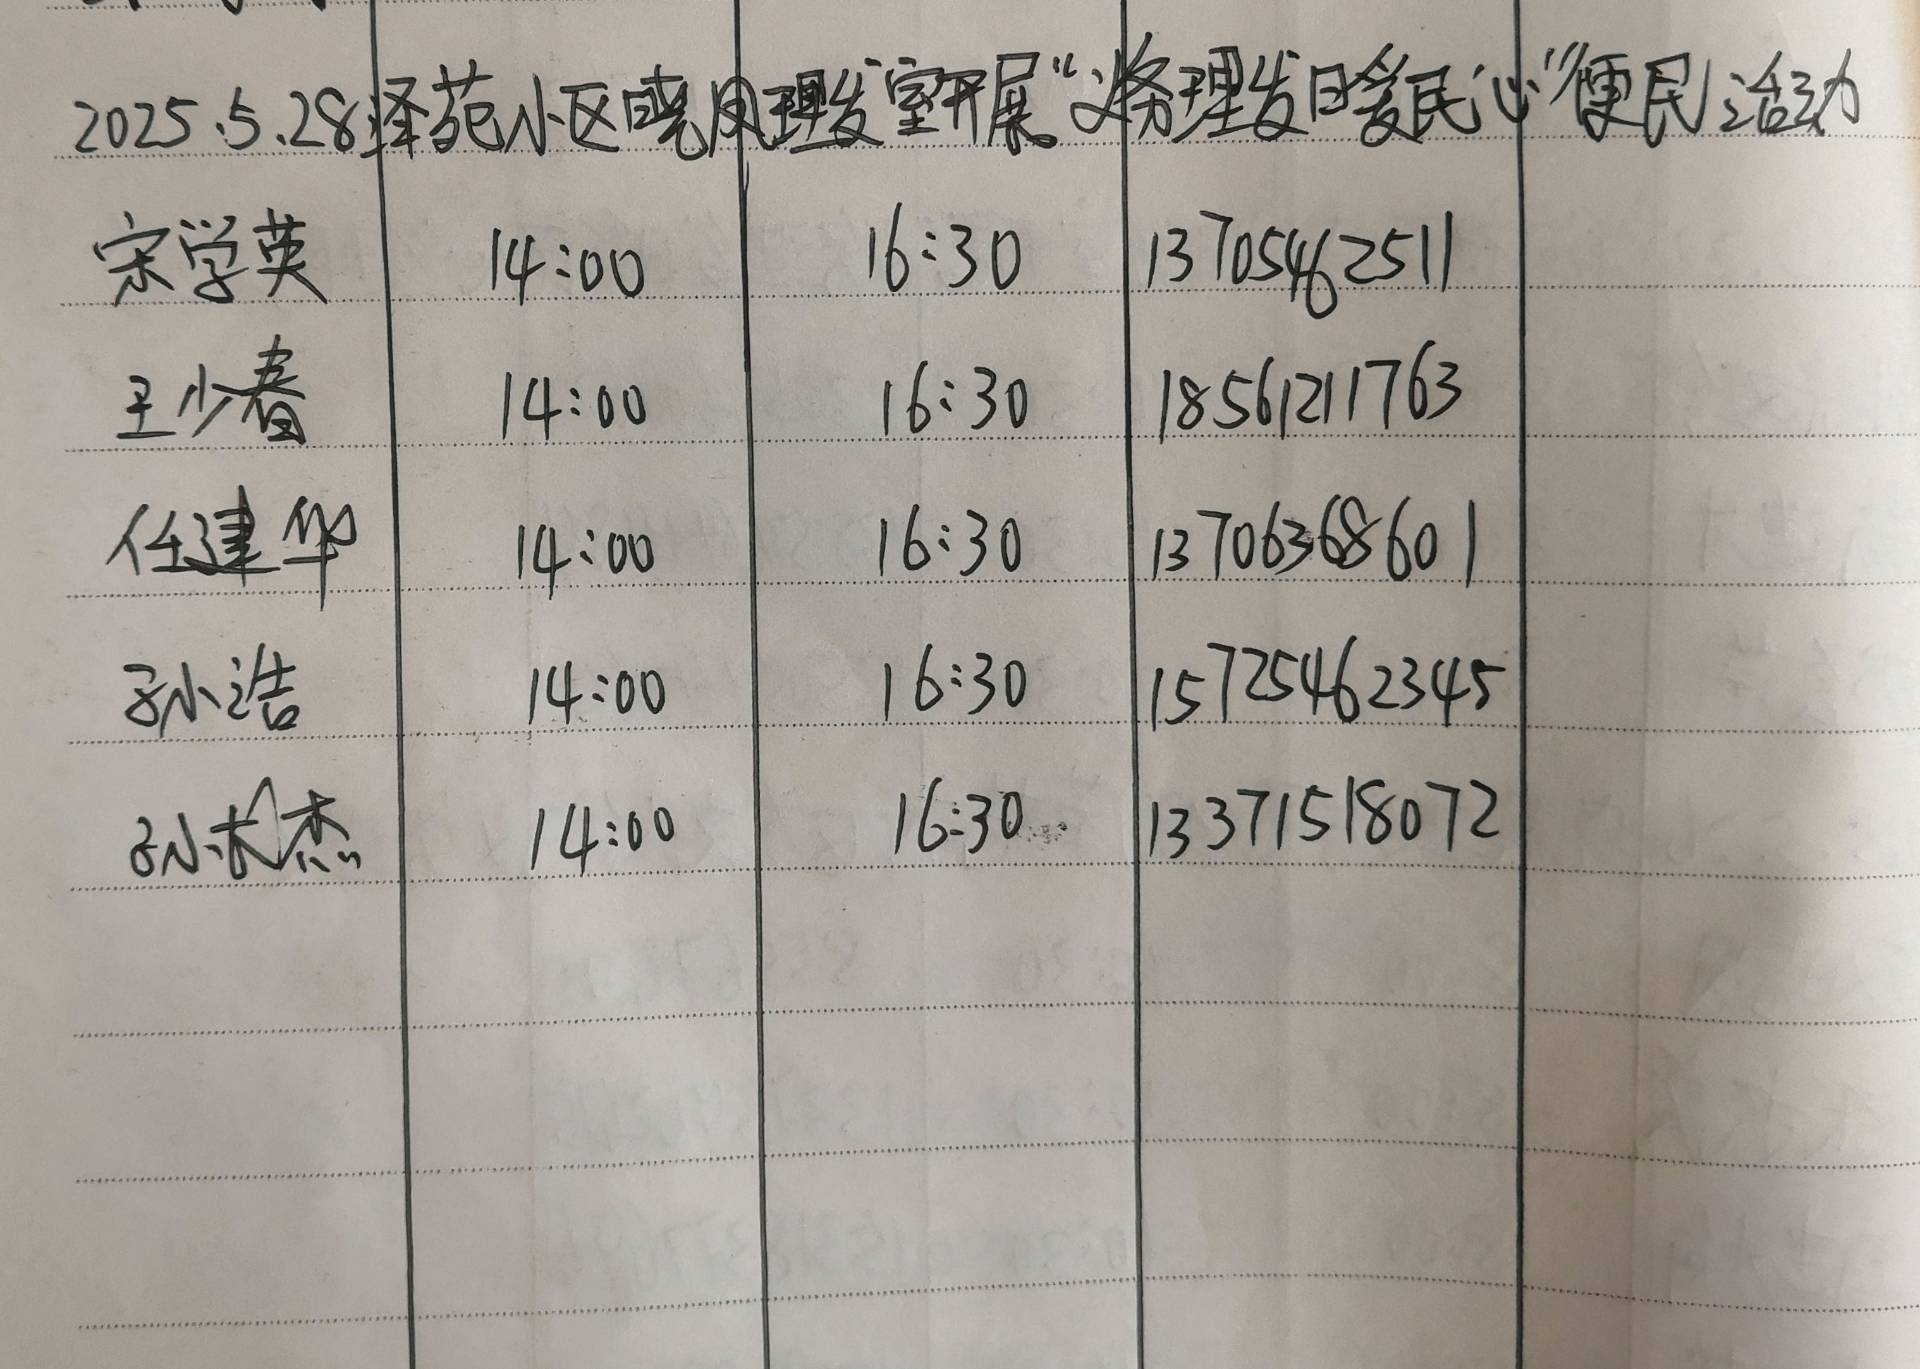 2025.5.28泽苑小区晓风理发室开展“义务理发日暖民心”便民活动
宋学英 14:00 16:30 13705462511
王少春 14:00 16:30 18561211763
任建华 14:00 16:30 13706368601
孙小浩 14:00 16:30 15725462345
孙杰 14:00 16:30 13371518072